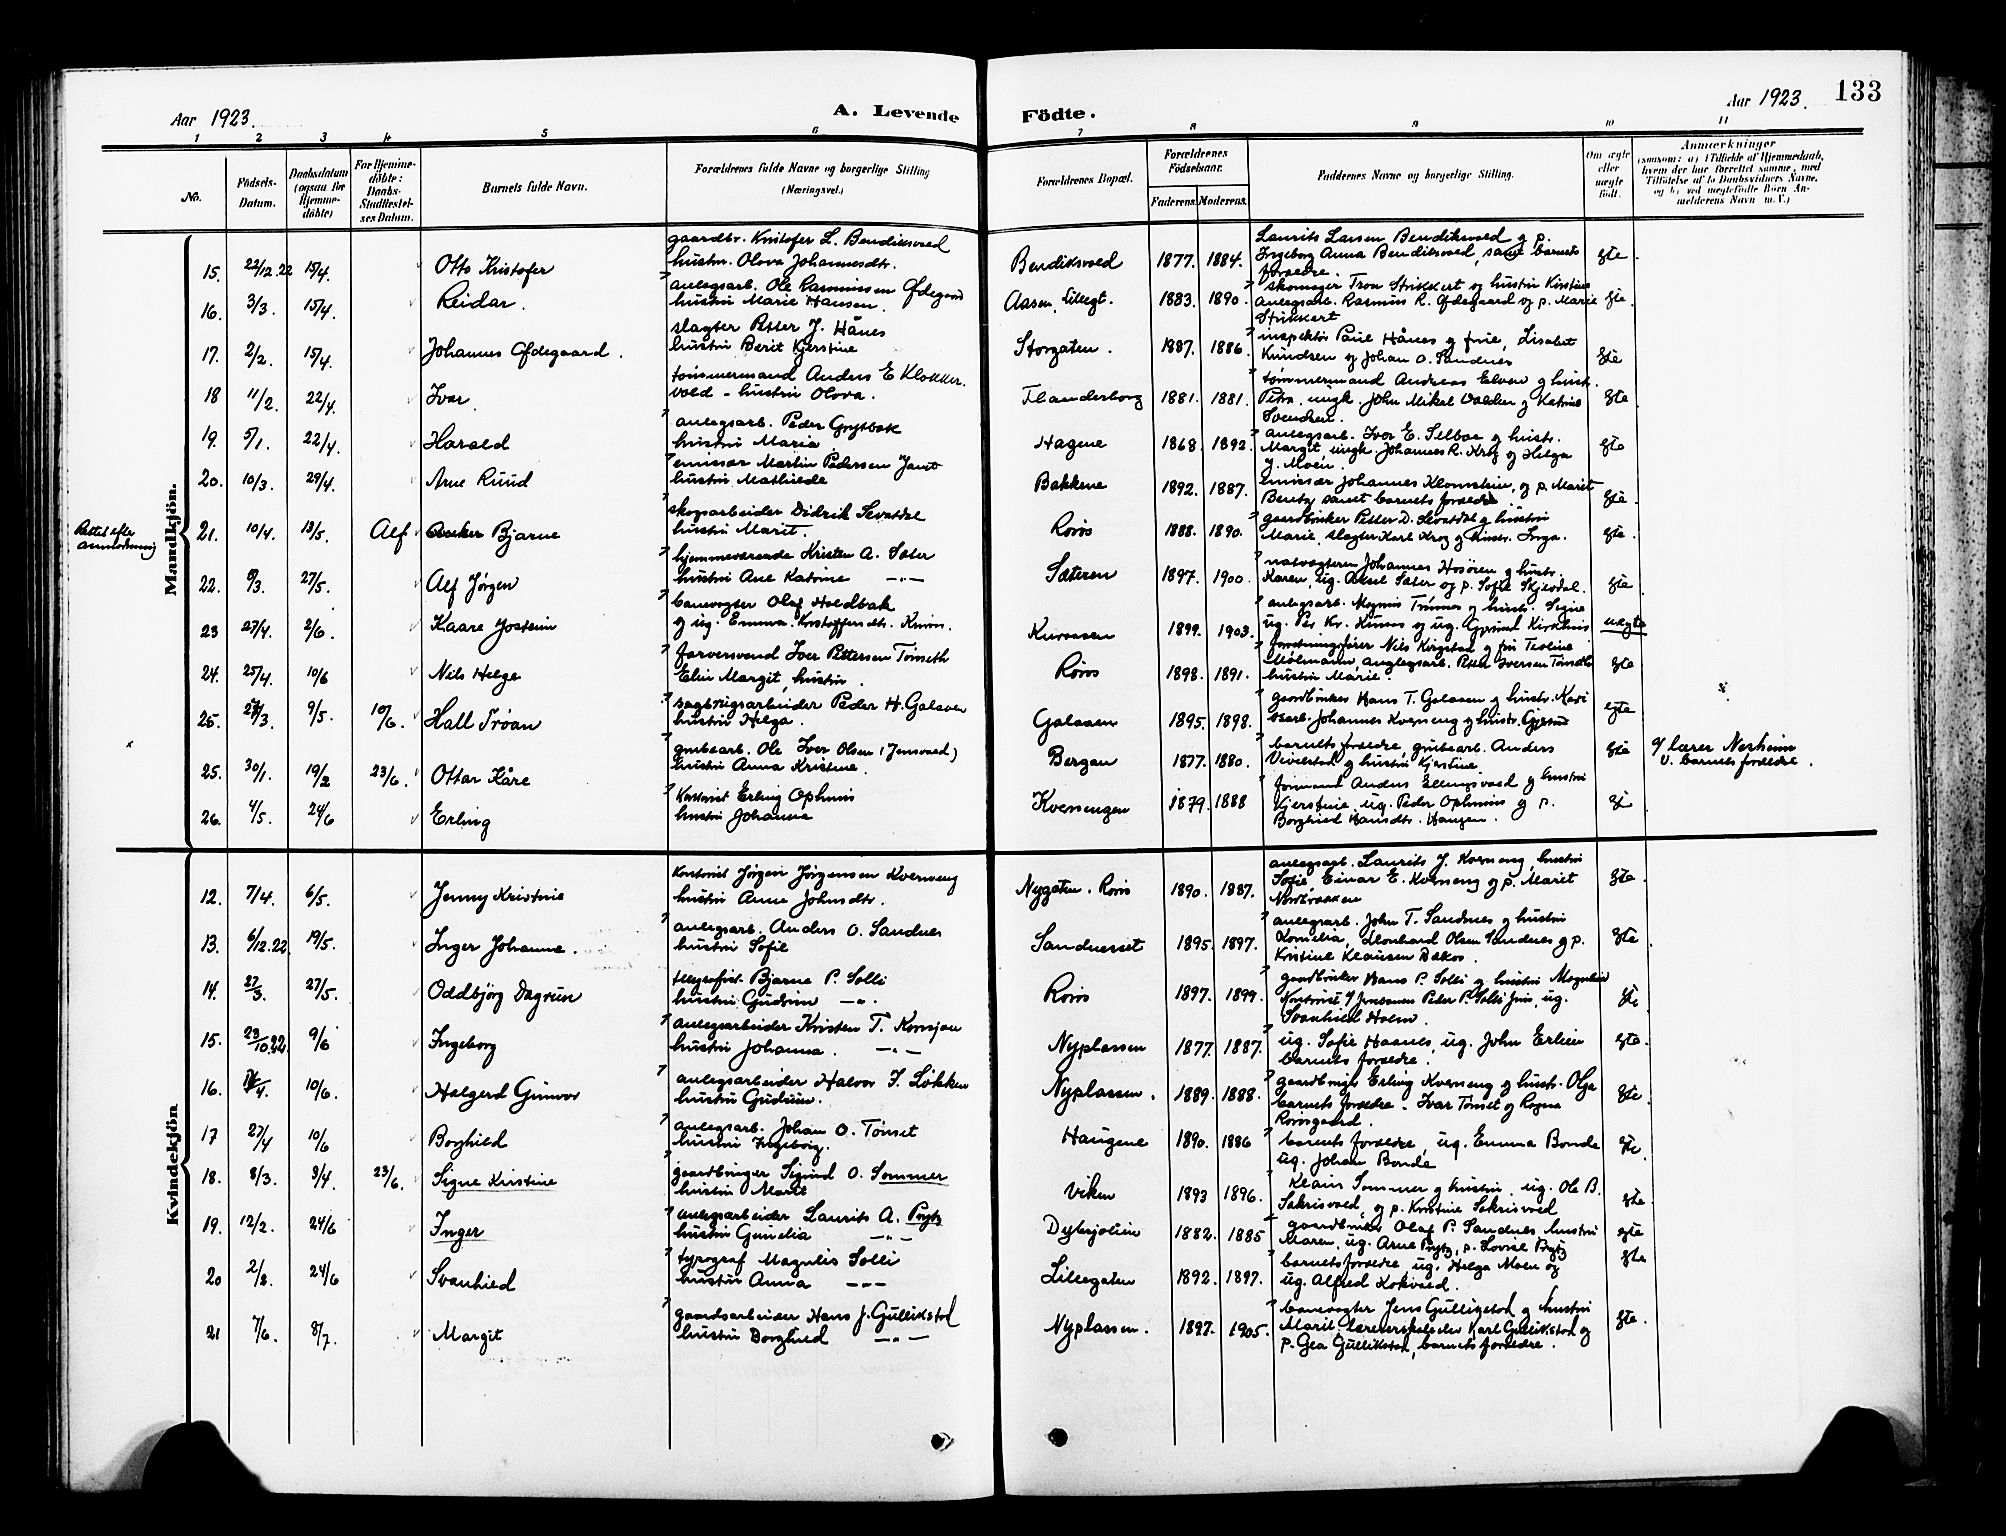 133
Aar 1923.
A. Levende
Födte.
Aar 1923.
1 2 3 4 5 6 7 8 9 10 11
No.
Födsels-
Datum.
Daabsdatum
(ogsaa for
Hjemme-
döbte)
For Hjemme-
döbte:
Daabs-
Stadfæstel-
ses Datum.
Barnets fulde Navn.
Forældrenes fulde Navne og borgerlige Stilling
(Næringsvei.)
Forældrenes Bopæl.
Forældrenes
Födselsaar.
Faderens. Moderens.
Faddernes Navne og borgerlige Stilling.
Om ægte
eller
uægte
födt.
Anmærkninger
(saasom: a) i Tilfælde af Hjemmedaab,
hvem der har forrettet samme, med
Tilföielse af to Daabsvidners Navne,
og b) ved uægtefödte Börn An-
melderens Navn m. V.)
Mandkjön.
15. 22/12.22 15/4. Otto Kristofer
gaardbr. Kristofer L. Bendiksvold
hustru Olova Johannesdtr.
Bendiksvold 1877. 1884.
Laurits Larsen Bendiksvold og p.
Ingeborg Anna Bendiksvold, samt barnets
forældre.
gte
16. 3/3. 15/4. Reidar.
anlegsarb. Ole Rasmussen Ødegaard
hustru Marie Hansen.
Aasen, Lillegt. 1883. 1890.
skomager Tron Strikkert og hustru Kirstine
anlegsarb. Rasmus R. Ødegaard og p. Marie
Strikkert
gte.
17. 2/2. 15/4. Johannes Ødegaard.
slagter Petter J. Hånes
hustru Berit Kjerstine
Storgaten. 1887. 1886.
inspektör Paul Hånes og frue, Lisabet
Knudsen og Johan O. Sandnes
gte
18 11/2. 22/4. Ivar.
tömmermand Anders E Klokker-
vold - hustru Olova.
Flanderborg 1881. 1881.
tömmermand Andreas Elven og hustr.
Petra, ungk. John Mikal Volden og Katrine
Svendsen.
gte
19. 5/1. 22/4. Harald
anlegsarb. Peder Grytbak
hustru Maria
Hagene 1868 1892.
anlegsarb. Ivar E. Selboe og hustr.
Margit, ungk. Johannes R. Krog og Helga
J. Moen.
gte
20. 10/3. 29/4. Arne Ruud
emissær Martin Pedersen
hustru Mathilde
Bakkene 1892. 1887.
emissær Johannes Klomstein, og p. Marit
Bentz samt barnets forældre
gte
Rettet efter
anmodning
21. 10/4. 13/5. Alf Bjarne
skogsarbeider Didrik Sevatdal
hustru Marit.
Röros 1888. 1890.
gaardbruker Petter D. Sevatdal og hustru
Marie, slagter Karl Krog og hustr. Inga.
gte.
22. 27/5. Alf Jörgen
hjemmeværende Kristen A. Sæter
hustru Ane Katrine -"-
Sæteren 1897. 1900.
natvagteren Johannes Hosören og hustr.
Karen, ug. Aksel Sæter og p. Sofie Skjevdal.
gte
23 27/4. 2/6. Kaare Jostein
banevogter Olaf Holdbak
og ug. Emma Kristoffersdtr. Kuraas.
Kuraasen 1899. 1903.
anlegsarb. Magnus Trönnes og hustr. Signe
uægte
24. 25/4. 10/6 Nils Helge
farversvend Iver Pettersen Tömseth
Elen Margit, hustru.
Röros 1898. 1891.
forretningsförer Nils Kirgstad og fru Teoline
Mölmann, anglegsarb. Petter Iversen Tömseth
hustru Marie.
gte
25. 9/5. 10/6. Hall Tröan
sagbrugsarbeider Peder H. Galaaen
hustru Helga.
Galaaen 1895. 1898.
gaardbruker Hans T. Galaaen og hustr. Kari
Johannes Kverneng og hustr. Gjertrud
egte
25. 30/1. 19/2 23/6. Ottar Kåre
grubearb. Ole Iver Olsen (Jensvold)
hustru Anna Kristine.
Bergan 1877. 1880.
barnets forældre, grubearb. Anders
Vivelstad og hustru Kjerstine
gte
v/ lærer Nesheim
v. barnets forældre.
26. 4/5. 24/6 Erling
Kontorist Erling Ophuus
hustru Johanna
Kvernengen 1879. 1888
formand Anders Ellingsvold og hustru
Kjerstine, ug. Peder Ophuus og p.
Borghild Hansdtr. Haugen.
Kvindekjön
12. 7/4. 6/5. Jenny Kristine
kontorist Jörgen Jörgensen Kverneng
hustru Anna Johnsdtr.
Nygaten. Röros 1890. 1887.
anlegsarb. Laurits J. Kverneng, hustru
Sofie, Einar E. Kverneng og p. Marit
Nordbrækken
gte.
13. 6/12.22 19/5. Inger Johanne.
anlegsarb. Anders O. Sandnes
hustru Sofie
Sandnesset 1895. 1897.
anlegsarb. John T. Sandnes og hustru
Kornelia, Leonhard Olsen Sandnes og p.
Kristine Klausen Bakos.
gte
14. 27/3. 27/5. Oddbjörg Dagrun
telegrafist Bjarne P. Solli
hustru Gudrun -"-
Röros 1897. 1899.
gaardbruker Hans P. Solli og hustru Magnhild
Svanhild Holm.
gte
15. 23/10.22. 9/6 Ingeborg
anlegsarbeider Kristen T. Korsjöen
hustru Johanna. -"-
Nyplassen 1877. 1887.
ug. Sofie Haanes, ug. John Erlien
barnets forældre.
gte.
16. 10/6. Halgerd Gunvor
anlegsarbeider Halvor J. Løkken
hustru Gudrun.
Nyplassen. 1889. 1888.
gaardbruger Erling Kverneng og hustr. Olga
barnets forældre. Ivar Tömset og Ragna
Rörosgaard.
gte
17 27/4 10/6 Borghild
anlegsarb. Johan O. Tömset
hustru Ingeborg.
Haugene 1890. 1886
barnets forældre, ug. Emma Bonde
ug. Johan Bonde
gte.
18. 8/3. 3/4. 23/6. Signe Kristine
gaardbruger Sigurd O. Sommer
hustru Marit
Viken 1893 1896.
Klaus Sommer og hustru. ug. Ole B.
Sakrisvold, og p. Kristine Sakrisvold
gte.
19. 12/2. 24/6 Inger
anlegsarbeider Laurits A. Prytz
hustru Gunelia -"-
1882. 1885
gaardbruker Olaf P. Sandnes, hustru
Maren, ug. Arne Prytz, p. Lovise Prytz
gte
20 2/8. 24/6 Svanhild
typograf Magnus Solli
hustru Anna -"-
Lillegaten 1892. 1897.
barnets forældre, ug. Helga Moen og
ug. Alfred Kokvold.
gte
21 7/6. 8/7. Margit
gaardsarbeider Hans J. Gullikstad
hustru Borghild -"-
Nyplassen. 1897. 1905.
banevogter Jens Gullikstad og hustru
Marit, lærerskoleelev Karl Gullikstad og
p. Gea Gullikstad, barnets forældre.
gte.